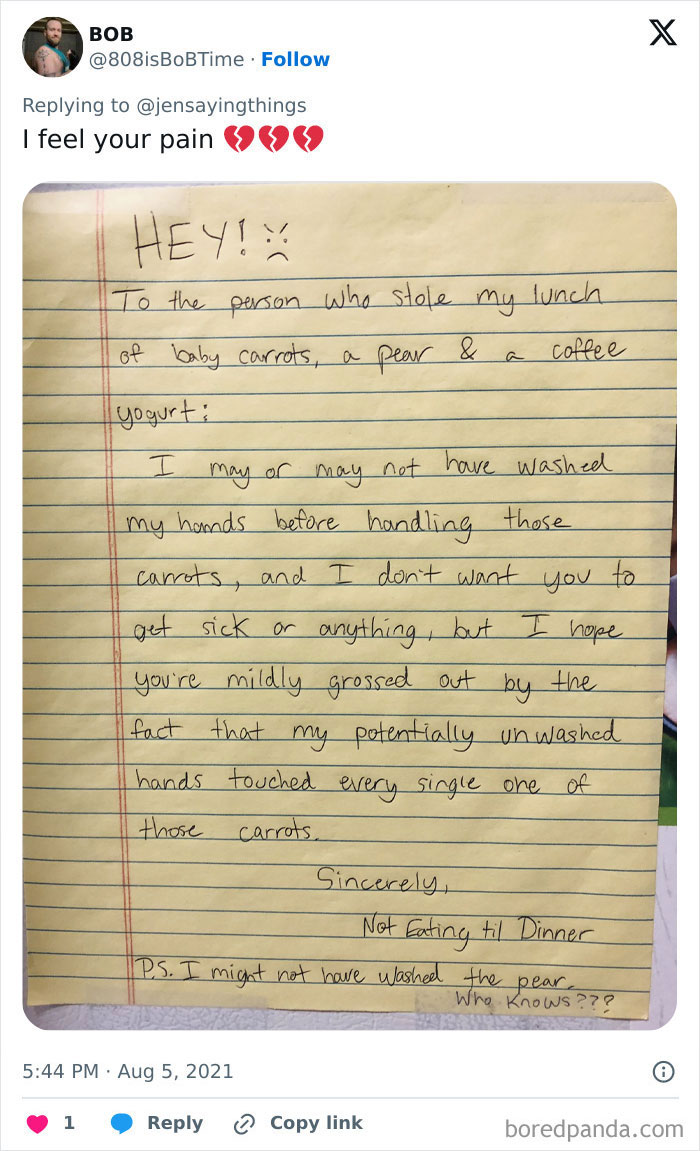 BOB
@808isBoBTime · Follow
Replying to @jensayingthings
I feel your pain 💔💔💔
HEY! :(
To the person who stole my lunch
of baby carrots, a pear & a coffee
yogurt:
I may or may not have washed
my hands before handling those
carrots, and I don't want you to
get sick or anything, but I hope
you're mildly grossed out by the
fact that my potentially unwashed
hands touched every single one of
those carrots.
Sincerely,
Not Eating til Dinner
P.S. I might not have washed the pear.
Who Knows???
5:44 PM · Aug 5, 2021
1 Reply Copy link
boredpanda.com